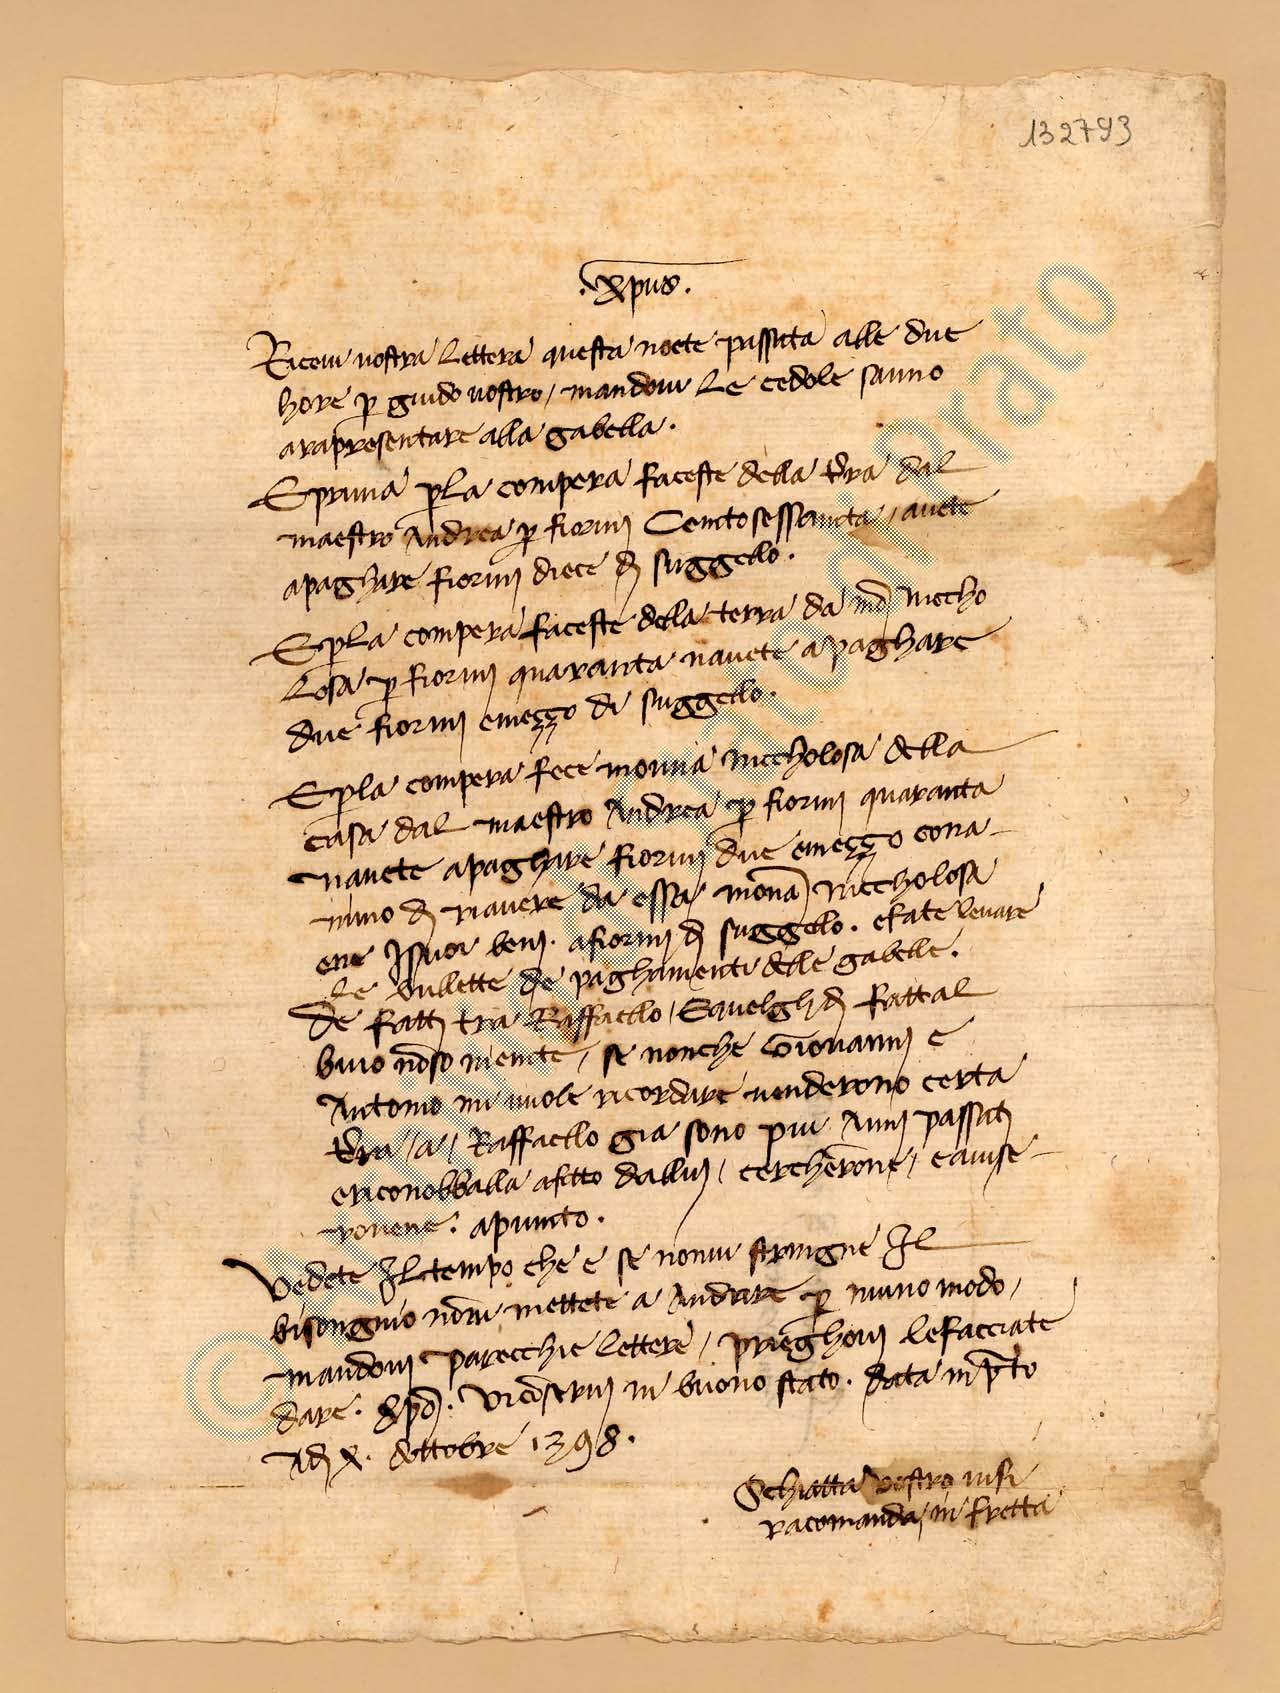 132793
.xpus.
Ricevi vostra lettera questa nocte passata alle due
hore p guido vostro / mandovi le cedole sanno
arapresentare alla gabella.
E prima p la compera faceste della tra dal
maestro Andrea p fiorini Centosessanta / avete
apaghare fiorini diece di suggello.
E p la compera faceste della terra da mo Niccho
losa p fiorini quaranta navete apaghare
due fiorini emezzo di suggello.
E p la compera fece monna Niccholosa della
casa dal maestro Andrea p fiorini quaranta
navete apaghare fiorini due emezzo cona
nimo di riavere da essa mona Niccholosa
ene Isuoi beni. afiorini di suggello. efate levare
le bullette de paghamenti delle gabelle.
De fatti tra Raffaello / Savelgh di fattal
buio no so niente / se nonche Giovanni e
Antonio mi vuole ricordare venderono certa
tra / a / Raffaello gia sono piu Anni passati
ericonobballa afitto dallui / cercherone / eavise
rovene. apunto.
Vedete Il tempo che e se nonvi strigne Il
bisongnio non vi mettete a Andare p niuno modo /
mandovi parecchie lettere / prieghovi lefacciate
dare. xpo. vi conservi in buono stato. data in prto
Adi x. dottobre 1398.
Schiatta vostro visi
racomanda / in fretta
© Archivio di Stato di Prato